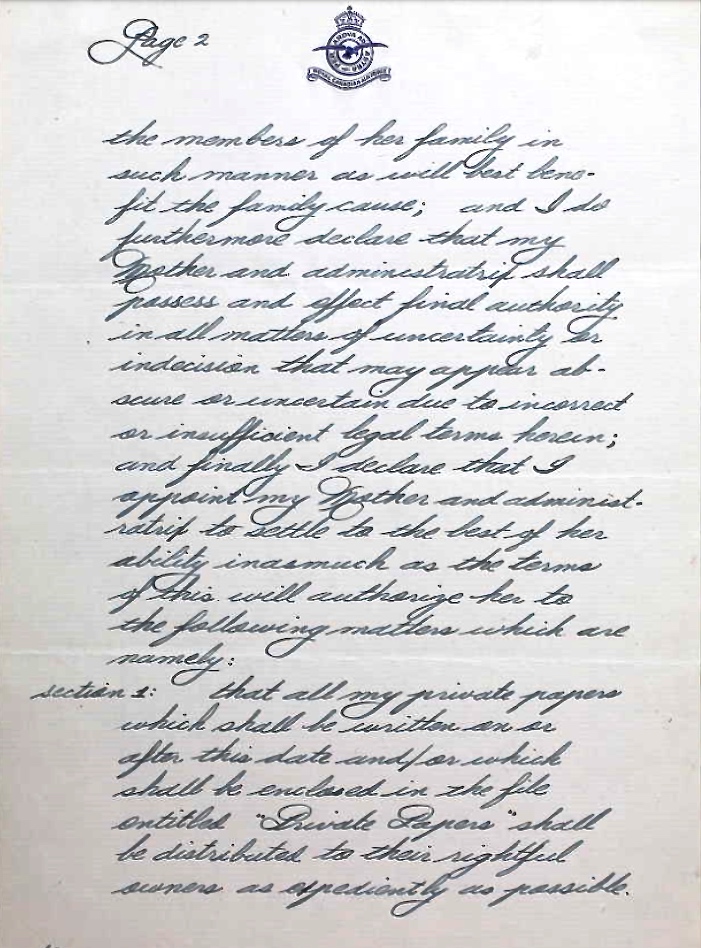 Page 2
PER ARDUA AD ASTRA
ROYAL CANADIAN AIR FORCE
the members of her family in
such manner as will best bene-
fit the family cause; and I do
furthermore declare that my
Mother and administratrix shall
possess and effect final authority
in all matters of uncertainty or
indecision that may appear ob-
scure or uncertain due to incorrect
or insufficient legal terms herein;
and finally I declare that I
appoint my Mother and administ-
ratrix to settle to the best of her
ability inasmuch as the terms
of this will authorize her to
the following matters which are
namely:
section 1: that all my private papers
which shall be written on or
after this date and/or which
shall be enclosed in the file
entitled "Private Papers" shall
be distributed to their rightful
owners as expediently as possible.